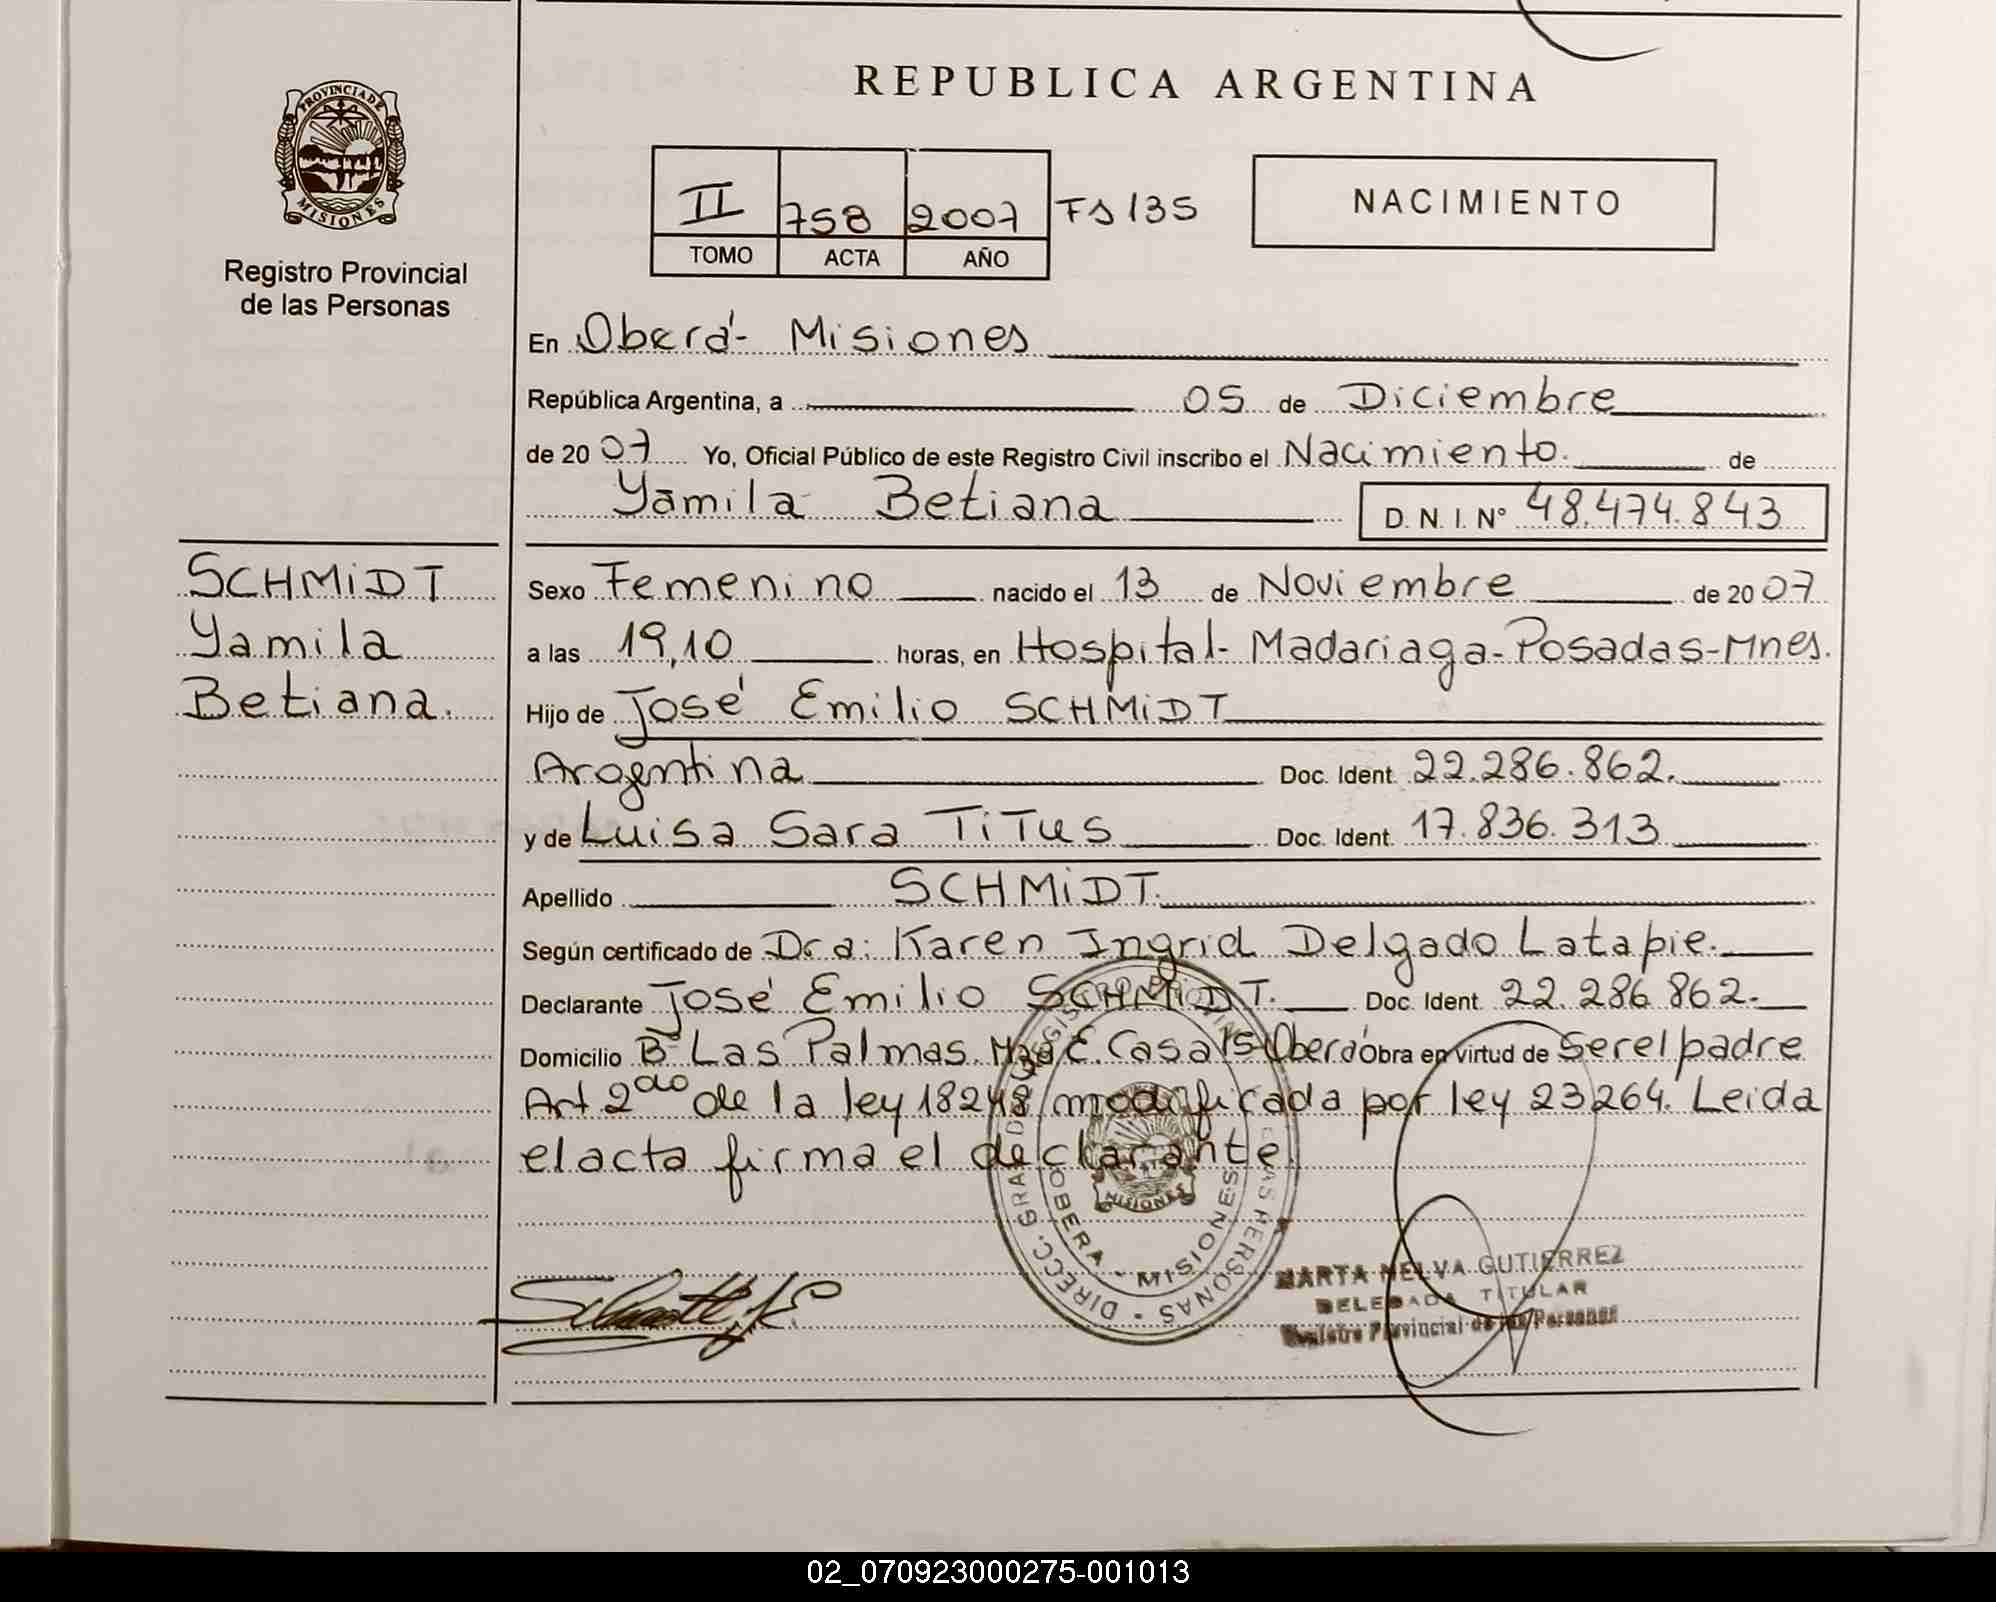 REPUBLICA ARGENTINA
PROVINCIA DE
MISIONES
Registro Provincial
de las Personas
II 758 2007 Fs 135
TOMO ACTA AÑO
NACIMIENTO
En Oberá - Misiones
República Argentina, a 05 de Diciembre
de 2007 Yo, Oficial Público de este Registro Civil inscribo el Nacimiento. de
Yamila Betiana D. N. I. N° 48.474.843
SCHMiDT
Yamila
Betiana.
Sexo Femenino nacido el 13 de Noviembre de 2007
a las 19,10 horas, en Hospital - Madariaga - Posadas - Mnes.
Hijo de José Emilio SCHMiDT
Argentina Doc. Ident. 22.286.862.
y de Luisa Sara TiTus Doc. Ident. 17.836.313
Apellido SCHMiDT.
Según certificado de Dra: Karen Ingrid Delgado Latapie.
Declarante José Emilio SCHMiDT. Doc. Ident. 22.286.862.
Domicilio B° Las Palmas. Mza E. Casa 15 - Oberá Obra en virtud de Ser el padre
Art 2do de la ley 18248 modificada por ley 23264. Leida
el acta firma el declarante.
DIRECC. GRAL. DEL REGISTRO PROVINCIAL DE LAS PERSONAS
OBERA - MISIONES
MISIONES
MARTA NELVA GUTIERREZ
DELEGADA TITULAR
Registro Provincial de las Personas
02_070923000275-001013